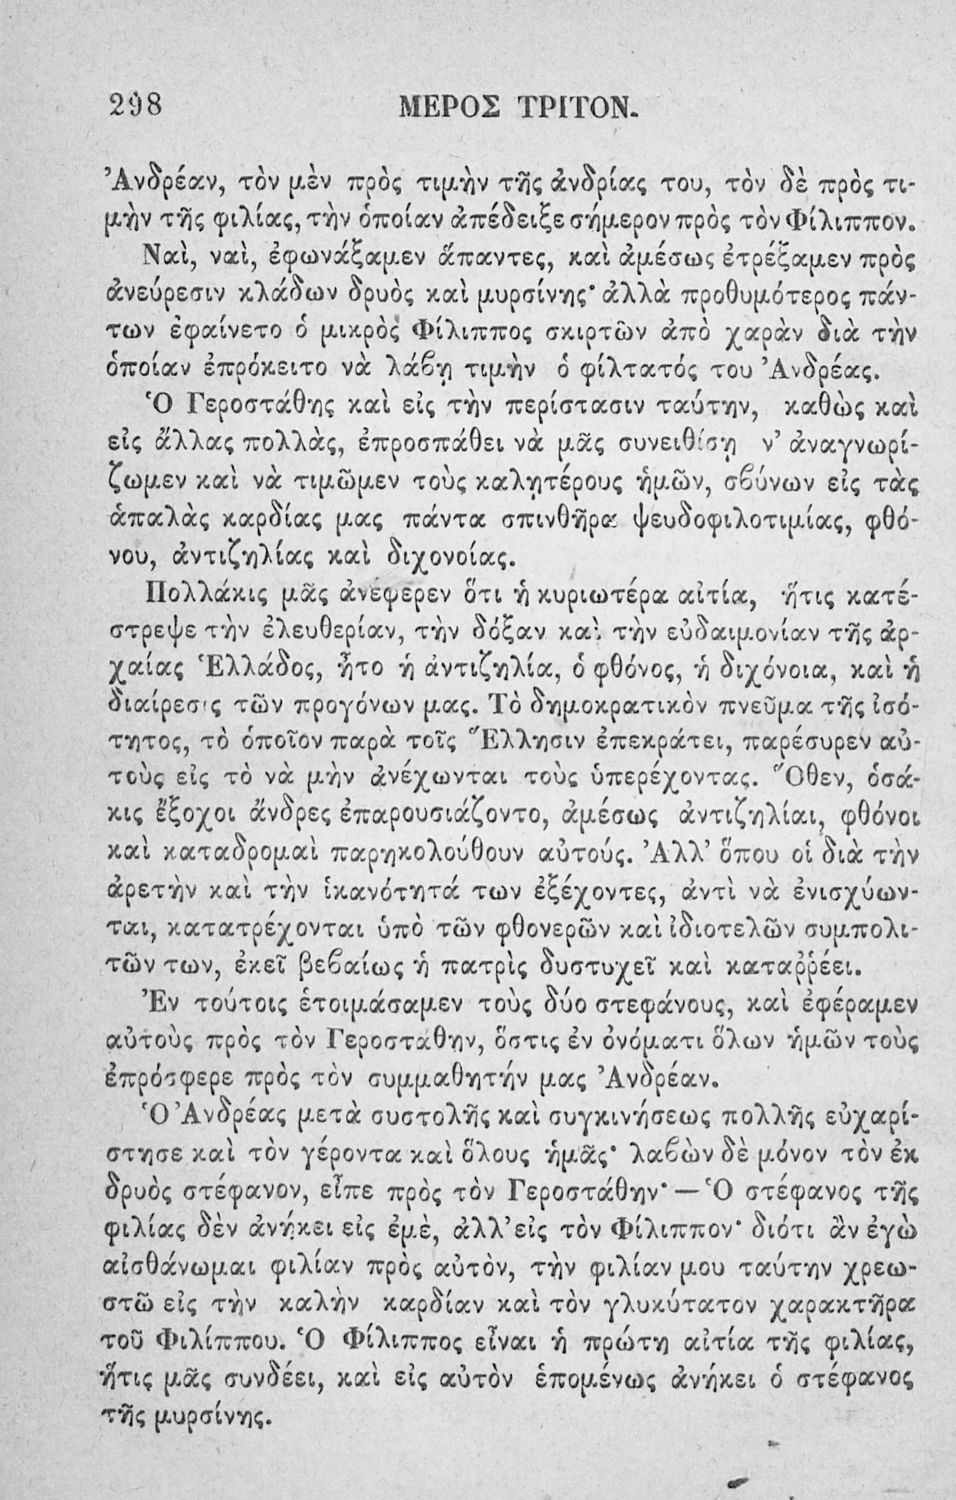 298 ΜΕΡΟΣ ΤΡΙΤΟΝ.
Ἀνδρέαν, τὸν μὲν πρὸς τιμὴν τῆς ἀνδρίας του, τὸν δὲ πρὸς τι-
μὴν τῆς φιλίας, τὴν ὁποίαν ἀπέδειξε σήμερον πρὸς τὸν Φίλιππον.
Ναὶ, ναὶ, ἐφωνάξαμεν ἅπαντες, καὶ ἀμέσως ἐτρέξαμεν πρὸς
ἀνεύρεσιν κλάδων δρυὸς καὶ μυρσίνης· ἀλλὰ προθυμότερος πάν-
των ἐφαίνετο ὁ μικρὸς Φίλιππος σκιρτῶν ἀπὸ χαρὰν διὰ τὴν
ὁποίαν ἐπρόκειτο νὰ λάβῃ τιμὴν ὁ φίλτατός του Ἀνδρέας.
Ὁ Γεροστάθης καὶ εἰς τὴν περίστασιν ταύτην, καθὼς καὶ
εἰς ἄλλας πολλὰς, ἐπροσπάθει νὰ μᾶς συνειθίσῃ ν’ ἀναγνωρί-
ζωμεν καὶ νὰ τιμῶμεν τοὺς καλητέρους ἡμῶν, σβύνων εἰς τὰς
ἁπαλὰς καρδίας μας πάντα σπινθῆρα ψευδοφιλοτιμίας, φθό-
νου, ἀντιζηλίας καὶ διχονοίας.
Πολλάκις μᾶς ἀνέφερεν ὅτι ἡ κυριωτέρα αἰτία, ἥτις κατέ-
στρεψε τὴν ἐλευθερίαν, τὴν δόξαν καὶ τὴν εὐδαιμονίαν τῆς ἀρ-
χαίας Ἑλλάδος, ἦτο ἡ ἀντιζηλία, ὁ φθόνος, ἡ διχόνοια, καὶ ἡ
διαίρεσις τῶν προγόνων μας. Τὸ δημοκρατικὸν πνεῦμα τῆς ἰσό-
τητος, τὸ ὁποῖον παρὰ τοῖς Ἕλλησιν ἐπεκράτει, παρέσυρεν αὐ-
τοὺς εἰς τὸ νὰ μὴν ἀνέχωνται τοὺς ὑπερέχοντας. Ὅθεν, ὁσά-
κις ἔξοχοι ἄνδρες ἐπαρουσιάζοντο, ἀμέσως ἀντιζηλίαι, φθόνοι
καὶ καταδρομαὶ παρηκολούθουν αὐτούς. Ἀλλ’ ὅπου οἱ διὰ τὴν
ἀρετὴν καὶ τὴν ἱκανότητά των ἐξέχοντες, ἀντὶ νὰ ἐνισχύων-
ται, κατατρέχονται ὑπὸ τῶν φθονερῶν καὶ ἰδιοτελῶν συμπολι-
τῶν των, ἐκεῖ βεβαίως ἡ πατρὶς δυστυχεῖ καὶ καταῤῥέει.
Ἐν τούτοις ἑτοιμάσαμεν τοὺς δύο στεφάνους, καὶ ἐφέραμεν
αὐτοὺς πρὸς τὸν Γεροστάθην, ὅστις ἐν ὀνόματι ὅλων ἡμῶν τοὺς
ἐπρόσφερε πρὸς τὸν συμμαθητήν μας Ἀνδρέαν.
Ὁ Ἀνδρέας μετὰ συστολῆς καὶ συγκινήσεως πολλῆς εὐχαρί-
στησε καὶ τὸν γέροντα καὶ ὅλους ἡμᾶς· λαβὼν δὲ μόνον τὸν ἐκ
δρυὸς στέφανον, εἶπε πρὸς τὸν Γεροστάθην· — Ὁ στέφανος τῆς
φιλίας δὲν ἀνήκει εἰς ἐμὲ, ἀλλ’ εἰς τὸν Φίλιππον· διότι ἂν ἐγὼ
αἰσθάνωμαι φιλίαν πρὸς αὐτὸν, τὴν φιλίαν μου ταύτην χρεω-
στῶ εἰς τὴν καλὴν καρδίαν καὶ τὸν γλυκύτατον χαρακτῆρα
τοῦ Φιλίππου. Ὁ Φίλιππος εἶναι ἡ πρώτη αἰτία τῆς φιλίας,
ἥτις μᾶς συνδέει, καὶ εἰς αὐτὸν ἑπομένως ἀνήκει ὁ στέφανος
τῆς μυρσίνης.